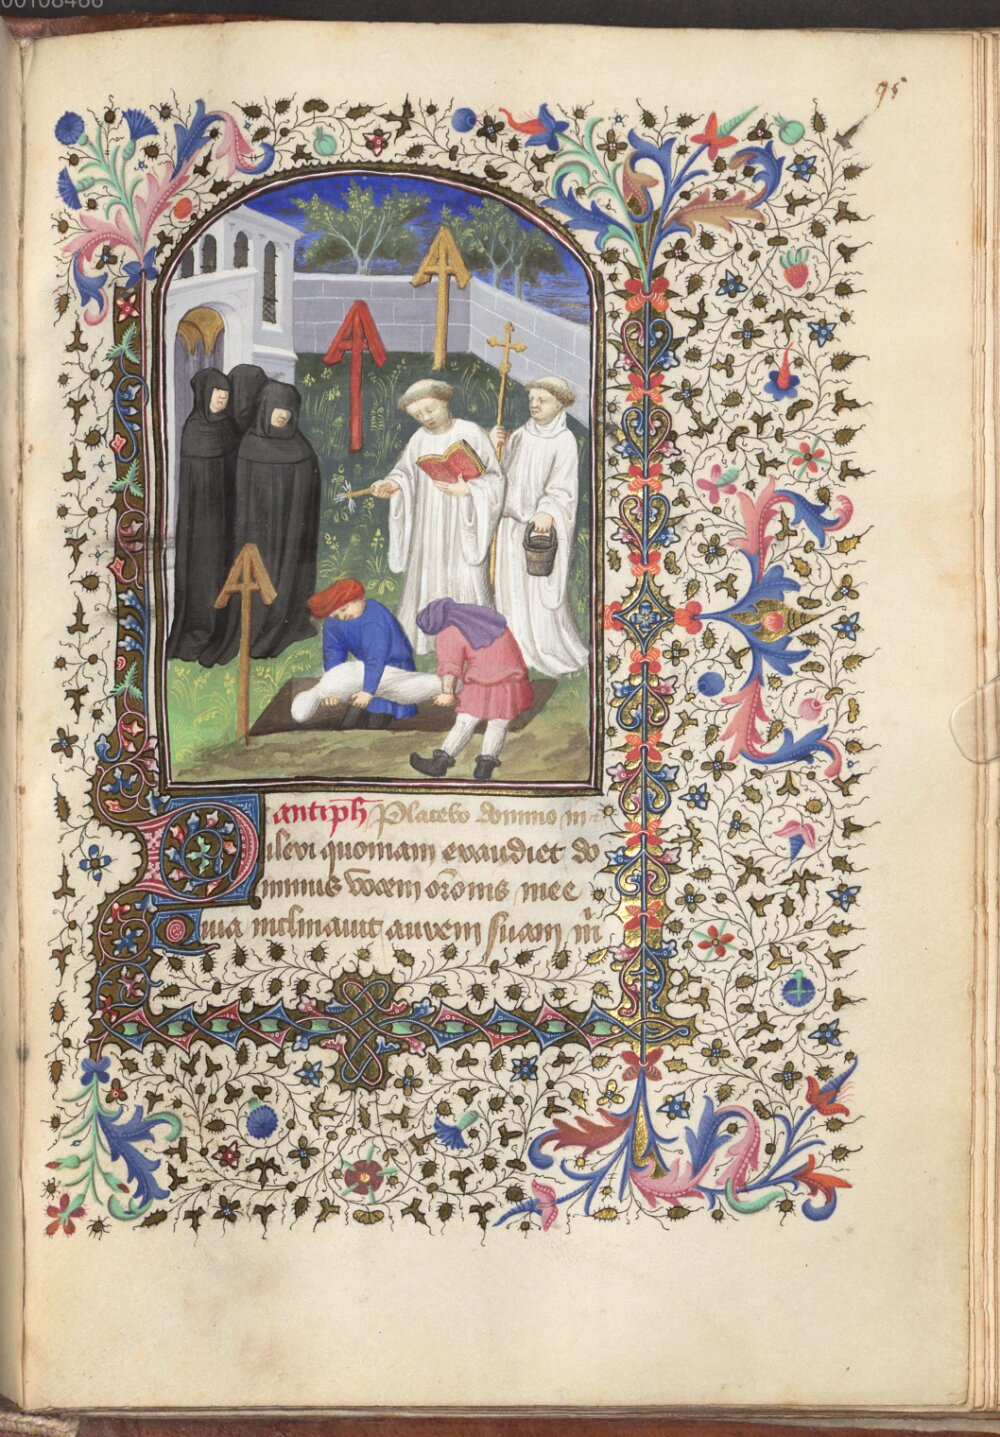 00108466
95
antiph̄ Placebo domino in
Dilexi quoniam exaudiet do
minus vocem orōnis mee
Quia inclinavit aurem suam m̄